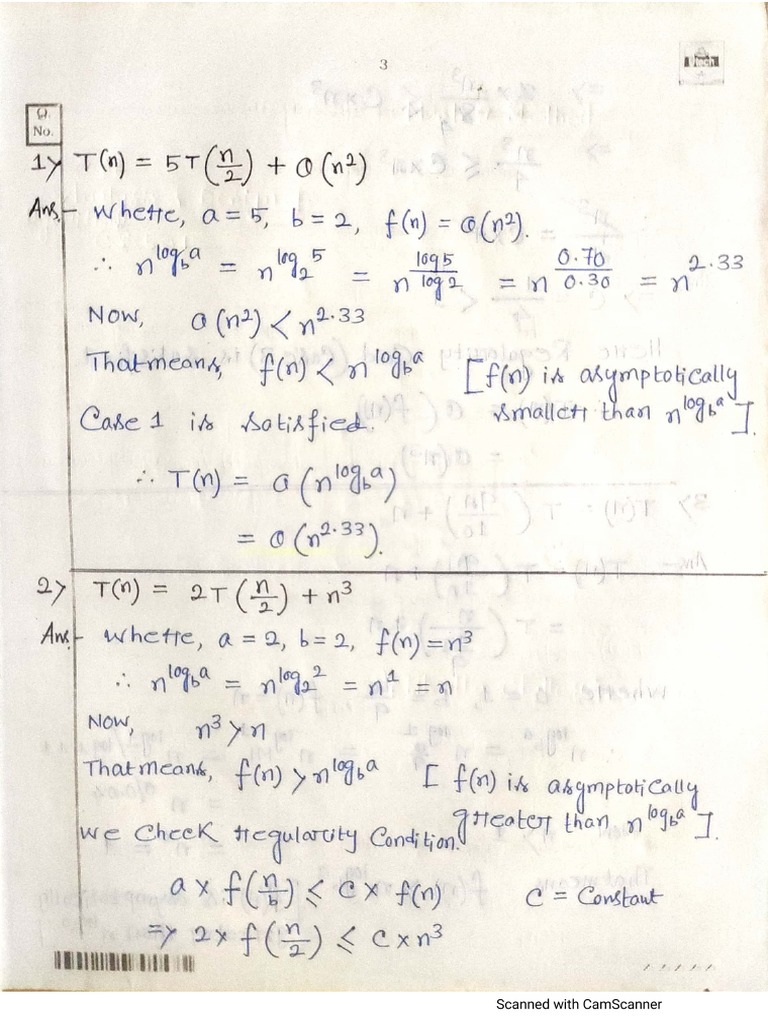 3
Vtech
Q. No.
1> T(n) = 5T(n/2) + O(n²)
Ans:- Where, a = 5, b = 2, f(n) = O(n²).
∴ n^(log_b a) = n^(log_2 5) = n^(log 5 / log 2) = n^(0.70 / 0.30) = n^2.33
Now, O(n²) < n^2.33
That means, f(n) < n^(log_b a) [f(n) is asymptotically
smaller than n^(log_b a)].
Case 1 is satisfied.
∴ T(n) = O(n^(log_b a))
= O(n^2.33).
2> T(n) = 2T(n/2) + n³
Ans:- Where, a = 2, b = 2, f(n) = n³
∴ n^(log_b a) = n^(log_2 2) = n^1 = n
Now, n³ > n
That means, f(n) > n^(log_b a) [f(n) is asymptotically
greater than n^(log_b a)].
We Check Regularity Condition.
a × f(n/b) ≤ C × f(n) C = Constant
=> 2 × f(n/2) ≤ C × n³
Scanned with CamScanner